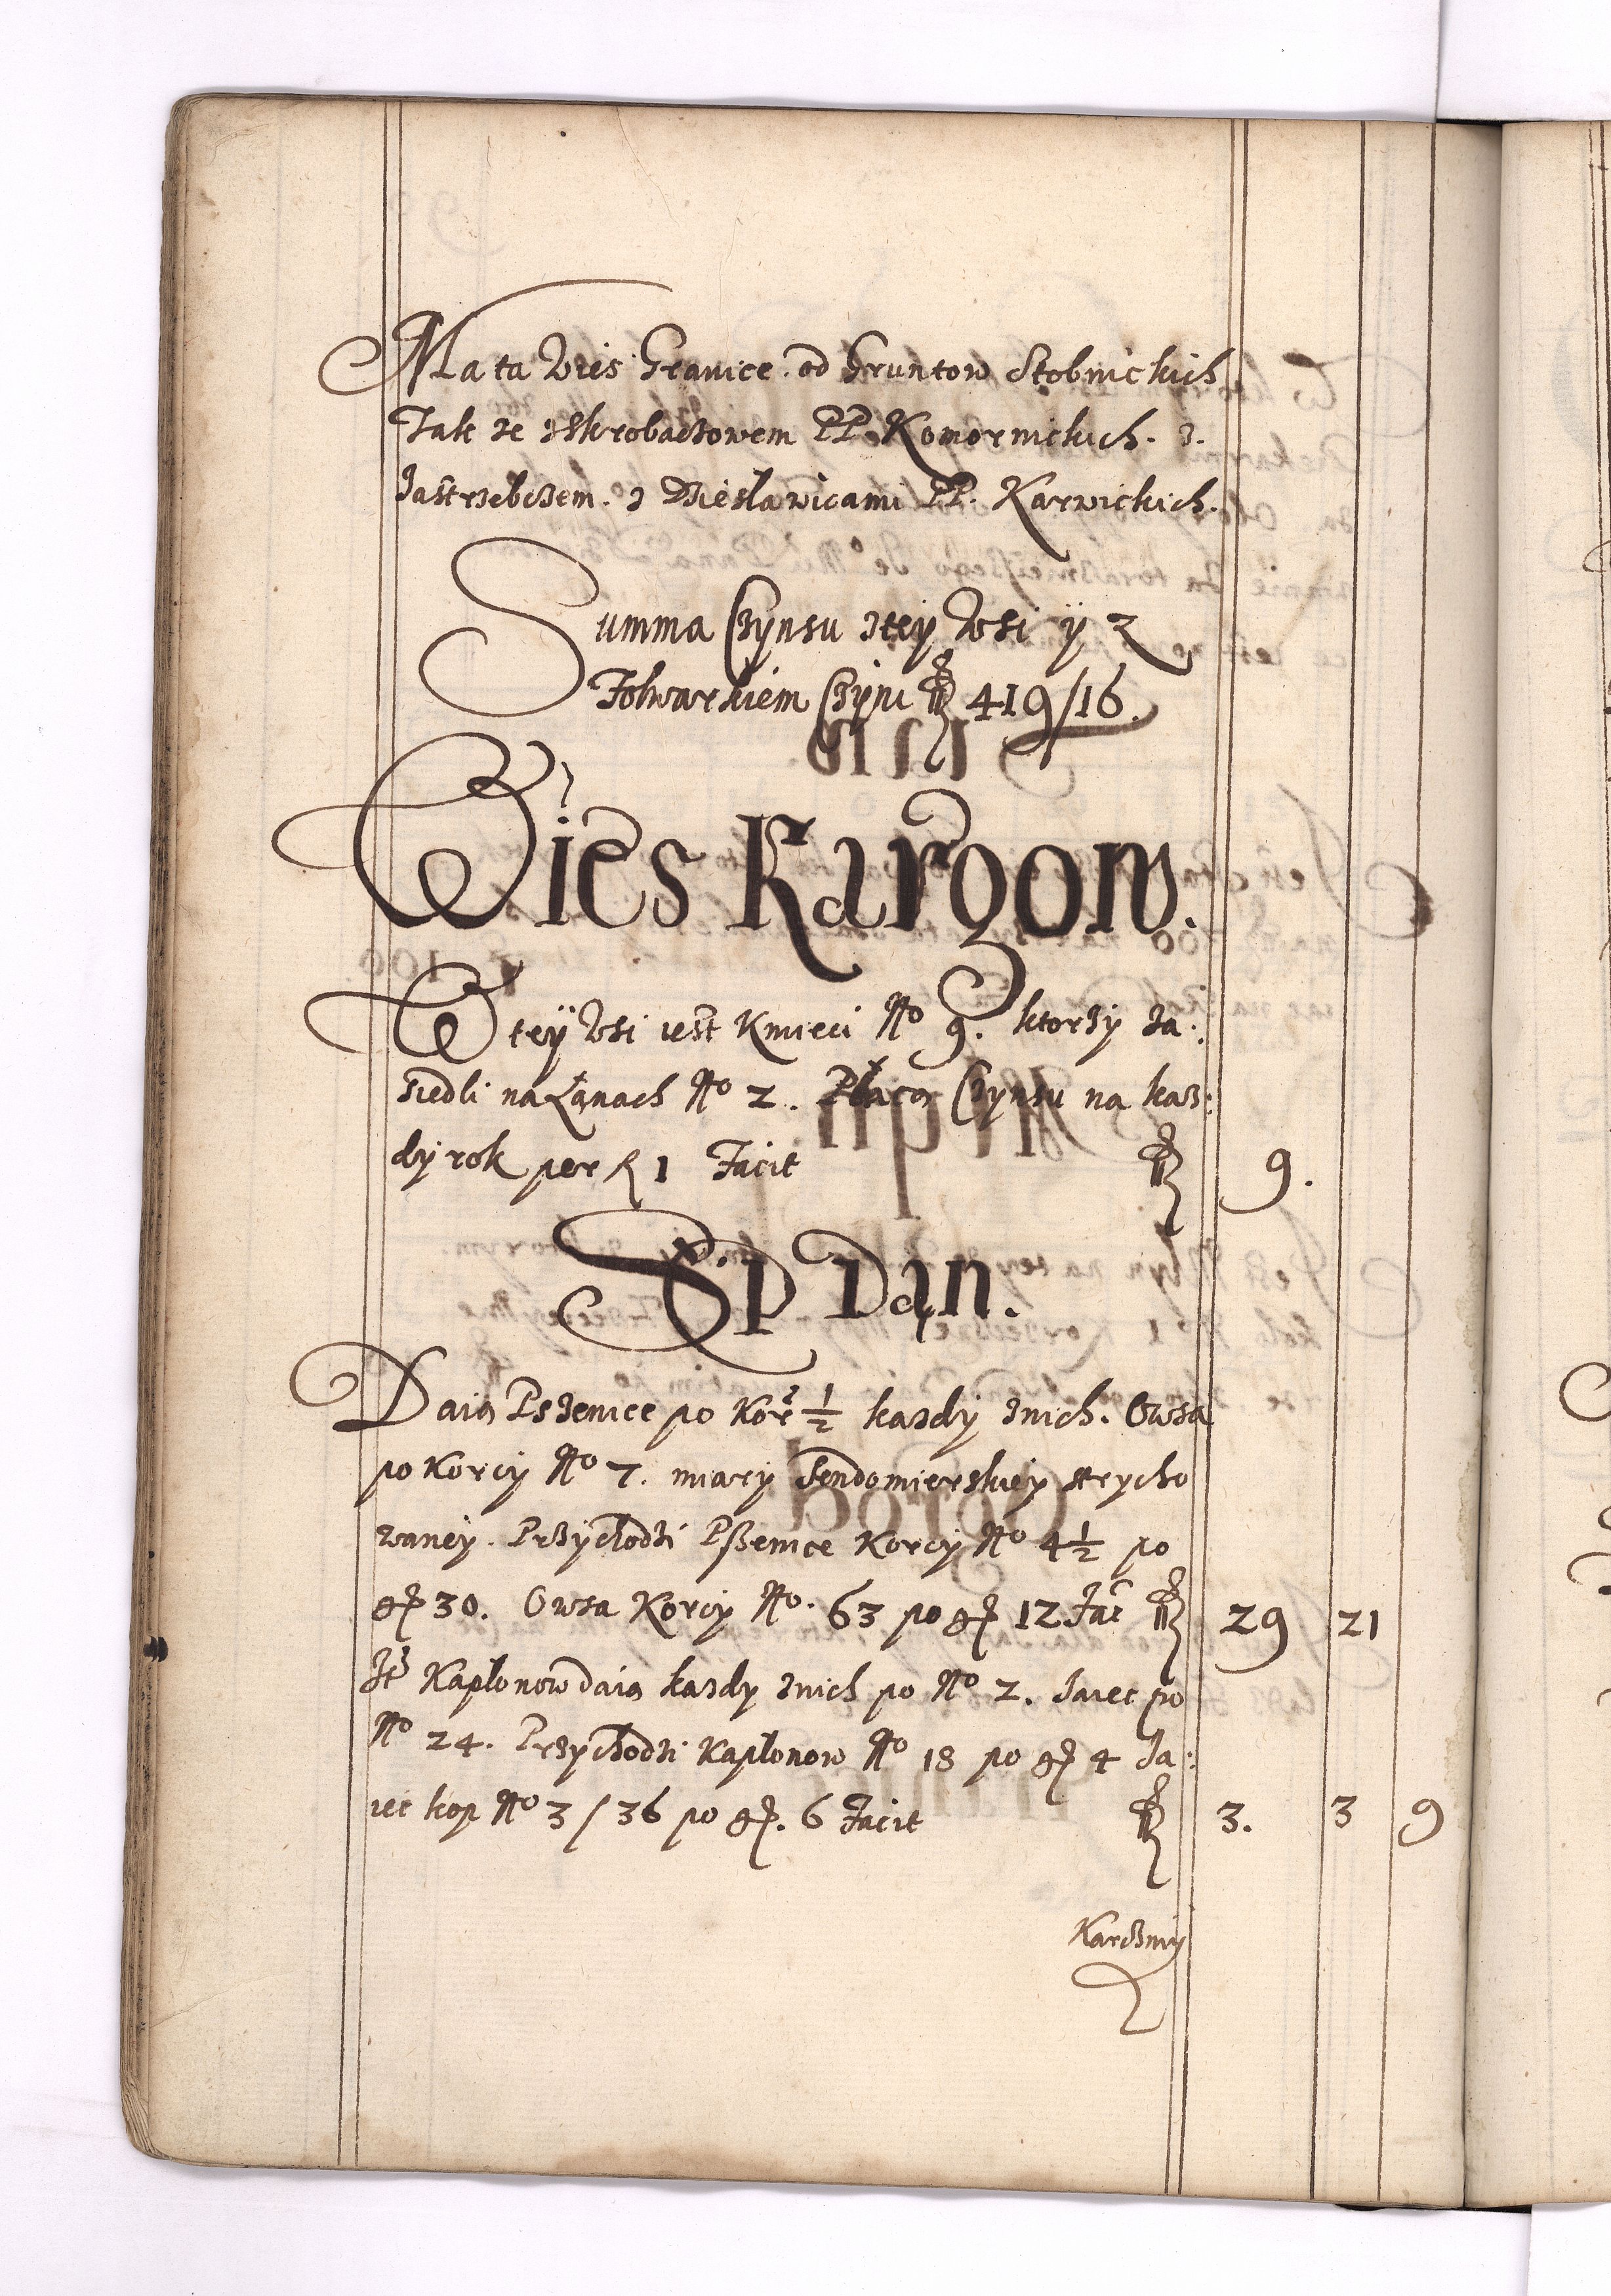 Ma ta Wies Granice od Gruntow Stobnickich
Takze zSkrobaczowem PP. Komornickich. z
Jastrzebczem. z Dziesławicami PP. Karwickich.
Summa Czynsu ztey Wsi ÿ z
Folwarkiem Czÿni 419/16.
Wies Kargow.
W teÿ Wsi iest Kmieci No 9. ktorzÿ Za:
siedli na Łanach No 2. Płacą Czynsu na kaz:
dÿ rok per 1 Facit 9.
Sęp Dan.
Daią Pszenice po Kor 1/2 kazdy znich. Owsa
po Korcy No 7. miary Sendomierskiey strycho
waney. Przychodzi Pszenice Korcy No 4 1/2 po
gr 30. Owsa Korcy No. 63 po gr 12 Fac 29 21
It Kapłonow daią kazdy znich po No 2. Jaiec po
No 24. Przychodzi Kapłonow No 18 po gr 4 Ja:
iec kop No 3/36 po gr. 6 Facit 3. 3 9
Karczmÿ